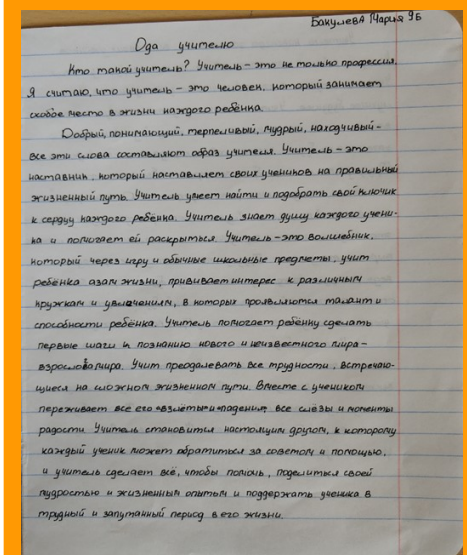 Бакулева Мария 9Б
Ода учителю
Кто такой учитель? Учитель – это не только профессия.
Я считаю, что учитель – это человек, который занимает
особое место в жизни каждого ребёнка.
Добрый, понимающий, терпеливый, мудрый, находчивый –
все эти слова составляют образ учителя. Учитель – это
наставник, который наставляет своих учеников на правильный
жизненный путь. Учитель умеет найти и подобрать свой ключик
к сердцу каждого ребёнка. Учитель знает душу каждого учени-
ка и помогает ей раскрыться. Учитель – это волшебник,
который через игру и обычные школьные предметы, учит
ребёнка азам жизни, прививает интерес к различным
кружкам и увлечениям, в которых проявляются талант и
способности ребёнка. Учитель помогает ребёнку сделать
первые шаги к познанию нового и неизвестного мира –
взрослого мира. Учит преодалевать все трудности, встречаю-
щиеся на сложном жизненном пути. Вместе с учеником
переживает все его взлёты и падения, все слёзы и моменты
радости. Учитель становится настоящим другом, к которому
каждый ученик может обратиться за советом и помощью,
и учитель сделает всё, чтобы помочь, поделиться своей
мудростью и жизненным опытом и поддержать ученика в
трудный и запутанный период в его жизни.